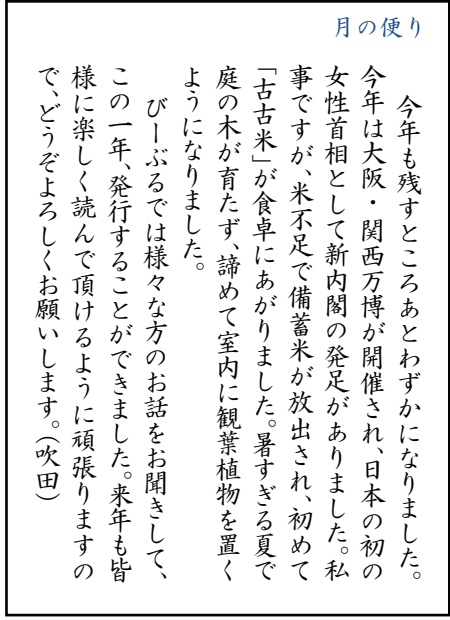 月の便り
今年も残すところあとわずかになりました。
今年は大阪・関西万博が開催され、日本の初の
女性首相として新内閣の発足がありました。私
事ですが、米不足で備蓄米が放出され、初めて
「古古米」が食卓にあがりました。暑すぎる夏で
庭の木が育たず、諦めて室内に観葉植物を置く
ようになりました。
びーぶるでは様々な方のお話をお聞きして、
この一年、発行することができました。来年も皆
様に楽しく読んで頂けるように頑張りますの
で、どうぞよろしくお願いします。(吹田)